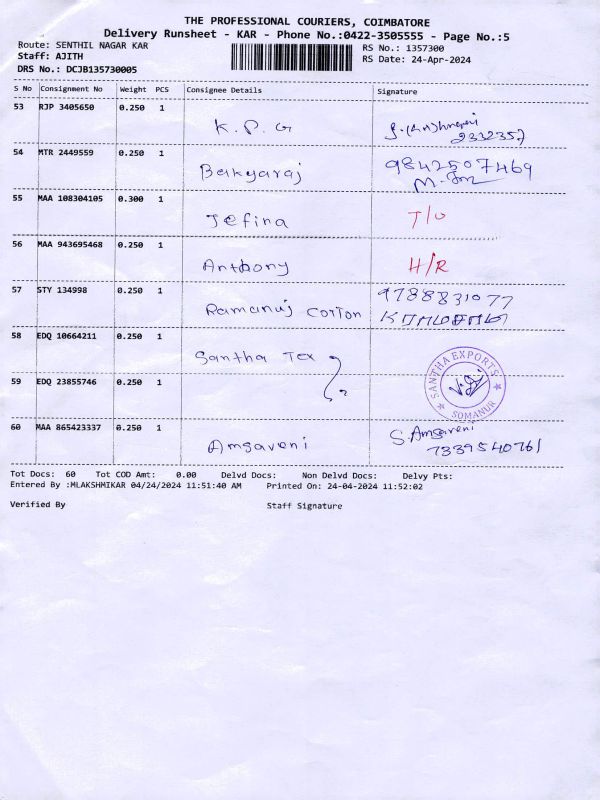 THE PROFESSIONAL COURIERS, COIMBATORE
Delivery Runsheet - KAR - Phone No.:0422-3505555 - Page No.:5
Route: SENTHIL NAGAR KAR
RS No.: 1357300
Staff: AJITH
RS Date: 24-Apr-2024
DRS No.: DCJB135730005
S No Consignment No Weight PCS Consignee Details Signature
53 RJP 3405650 0.250 1
K. P. G
2332357
54 MTR 2449559 0.250 1 9842507469
Bakyaraj
55 MAA 108304105 0.300 1
Jefina T/O
56 MAA 943695468 0.250 1
Anthony H/R
57 STY 134998 0.250 1 9788831077
Ramanuj Cotton
58 EDQ 10664211 0.250 1
Santha Tex
SANTHA EXPORTS
SOMANUR
59 EDQ 23855746 0.250 1
60 MAA 865423337 0.250 1 S. Amsaveni
Amsaveni 7339540761
Tot Docs: 60 Tot COD Amt: 0.00 Delvd Docs: Non Delvd Docs: Delvy Pts:
Entered By :MLAKSHMIKAR 04/24/2024 11:51:40 AM Printed On: 24-04-2024 11:52:02
Verified By Staff Signature